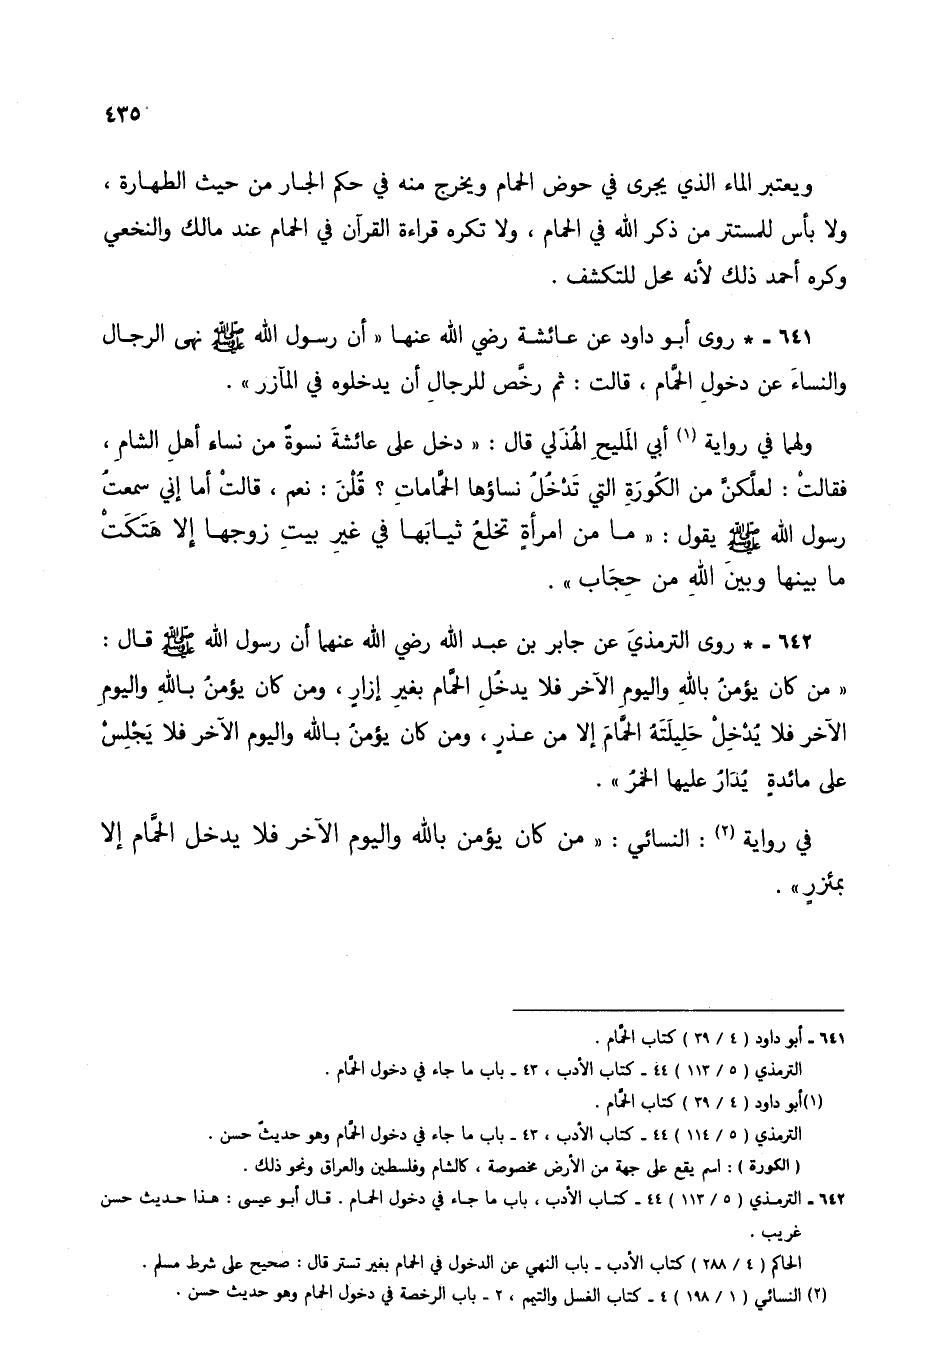 ٤٣٥
ويعتبر الماء الذي يجرى في حوض الحمام ويخرج منه في حكم الجـار من حيث الطهـارة ،
ولا بأس للمستتر من ذكر الله في الحمام ، ولا تكره قراءة القرآن في الحمام عند مالك والنخعي
وكره أحمد ذلك لأنه محل للتكشف .
٦٤١ - * روى أبـو داود عن عـائشـة رضي الله عنهـا « أن رسـول الله ﷺ نهى الرجـال
والنساءَ عن دخولِ الحمَّام ، قالت : ثم رخَّص للرجالِ أن يدخلوه في المآزر » .
ولهما في رواية (١) أبي المَليحِ الهُذَلي قال : « دخل على عائشةَ نسوةٌ من نساء أهلِ الشامِ ،
فقالتْ : لعلَّكنَّ من الكُورَةِ التي تَدْخُلُ نساؤها الحمَّاماتِ ؟ قُلْنَ : نعم ، قالتْ أما إني سمعتُ
رسول الله ﷺ يقول : « مـا من امرأةٍ تخلعُ ثيـابَهـا في غيرِ بيتِ زوجهـا إلا هَتَكَتْ
ما بينها وبينَ اللهِ من حِجَاب » .
٦٤٢ - * روى الترمذيَ عن جابر بن عبـد الله رضي الله عنهما أن رسول الله ﷺ قـال :
« من كان يؤمنُ باللهِ واليومِ الآخر فلا يدخُلِ الحمَّام بغيرِ إزارٍ ، ومن كان يؤمنُ بـاللهِ واليومِ
الآخر فلا يُدْخِلْ حَلِيلَتَهُ الحمَّامَ إلا من عـذرٍ ، ومن كان يؤمنُ بـالله واليوم الآخر فلا يَجْلِسْ
على مائدةٍ يُدَارُ عليها الخمرُ » .
في رواية (٢) : النسائي : « من كان يؤمن بالله واليوم الآخر فلا يدخل الحمَّام إلا
بمئزرٍ » .
٦٤١ - أبو داود ( ٤ / ٣٩ ) كتاب الحمَّام .
الترمذي ( ٥ / ١١٣ ) ٤٤ - كتاب الأدب ، ٤٣ - باب ما جاء في دخول الحمَّام .
(١) أبو داود ( ٤ / ٣٩ ) كتاب الحمَّام .
الترمذي ( ٥ / ١١٤ ) ٤٤ - كتاب الأدب ، ٤٣ - باب ما جاء في دخول الحمَّام وهو حديثٌ حسن .
( الكورة ) : اسم يقع على جهة من الأرض مخصوصة ، كالشام وفلسطين والعراق ونحو ذلك .
٦٤٢ - الترمـذي ( ٥ / ١١٣ ) ٤٤ - كتـاب الأدب ، باب مـا جـاء في دخول الحمـام . قـال أبـو عيسى : هـذا حـديث حسن
غريب .
الحاكم ( ٤ / ٢٨٨ ) كتاب الأدب - باب النهي عن الدخول في الحمام بغير تستر قال : صحيح على شرط مسلم .
(٢) النسائي ( ١ / ١٩٨ ) ٤ - كتاب الغسل والتيمم ، ٢ - باب الرخصة في دخول الحمام وهو حديث حسن .